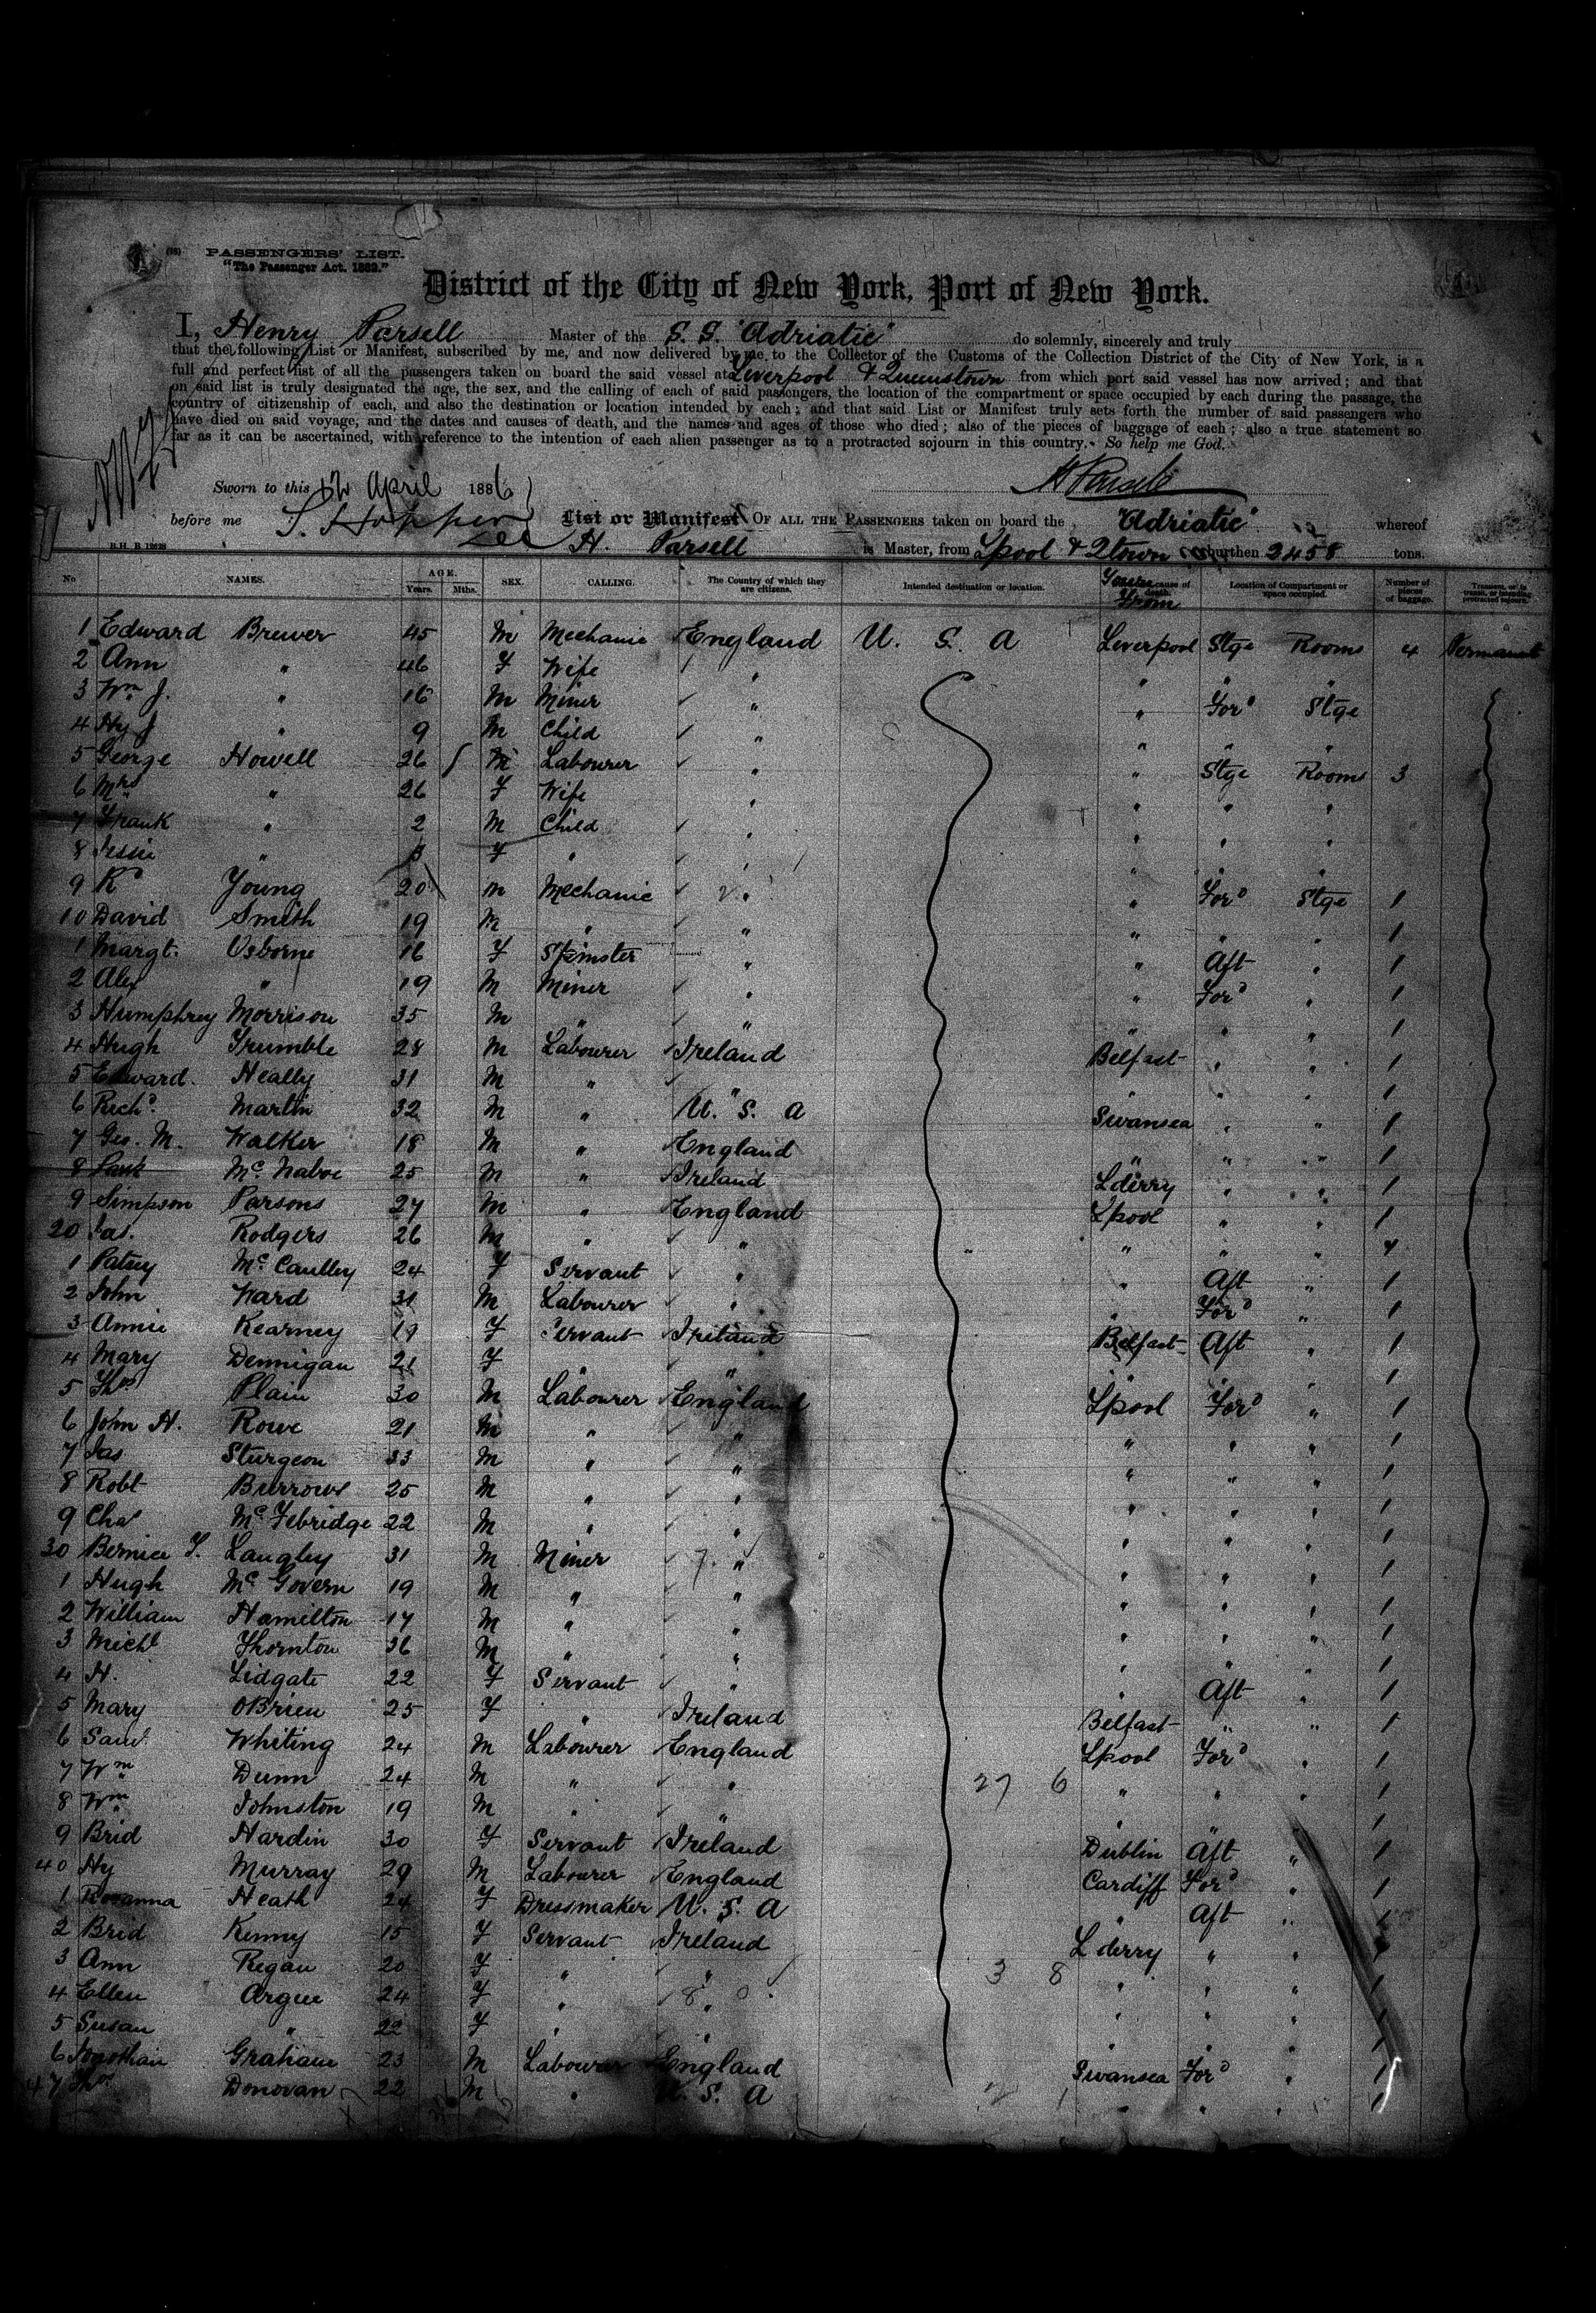 (96) PASSENGERS' LIST.
"The Passenger Act. 1882."
District of the City of New York, Port of New York.
I, Henry Parsell Master of the S.S. "Adriatic" do solemnly, sincerely and truly
that the following List or Manifest, subscribed by me, and now delivered by me to the Collector of the Customs of the Collection District of the City of New York, is a
full and perfect list of all the passengers taken on board the said vessel at Liverpool & Queenstown from which port said vessel has now arrived; and that
on said list is truly designated the age, the sex, and the calling of each of said passengers, the location of the compartment or space occupied by each during the passage, the
country of citizenship of each, and also the destination or location intended by each; and that said List or Manifest truly sets forth the number of said passengers who
have died on said voyage, and the dates and causes of death, and the names and ages of those who died; also of the pieces of baggage of each; also a true statement so
far as it can be ascertained, with reference to the intention of each alien passenger as to a protracted sojourn in this country. So help me God.
Sworn to this 12 April 1886 H Parsell
before me S. Hopper List or Manifest OF ALL THE PASSENGERS taken on board the "Adriatic" whereof
H. Parsell is Master, from Lpool & Qtown burthen 2458 tons.
No NAMES. AGE. Years. Mths. SEX. CALLING. The Country of which they are citizens. Intended destination or location. cause of death. From Location of Compartment or space occupied. Number of pieces of baggage. Transient, or in transit, or intending protracted sojourn.
1 Edward Brewer 45 M Mechanic England U. S. A Liverpool Stge Rooms 4 Permanent
2 Ann " 46 F Wife " " " "
3 Wm J. " 16 M Miner " " Ford Stge
4 Hy J " 9 M Child " " " "
5 George Howell 26 M Labourer " " Stge Rooms 3
6 Mrs " 26 F Wife " " " "
7 Frank " 2 M Child " " " "
8 Jessie " F " " "
9 Rd Young 20 M Mechanic " " Ford Stge 1
10 David Smith 19 M " " " " " 1
1 Margt. Osborne 16 F Spinster " " Aft " 1
2 Alex " 19 M Miner " " Ford " 1
3 Humphrey Morrison 35 M " " " " " 1
4 Hugh Trumble 28 M Labourer Ireland Belfast " " 1
5 Edward Heally 31 M " " " " " 1
6 Richd. Martin 32 M " U. S. A Swansea " " 1
7 Geo. M. Walker 18 M " England " " " 1
8 Mc. Naboe 25 M " Ireland Lderry " " 1
9 Simpson Parsons 27 M " England Lpool " " 1
20 Jas. Rodgers 26 M " " " " " 4
1 Patsy Mc. Caulley 24 F Servant " " Aft " 1
2 John Ward 31 M Labourer " " Ford " 1
3 Annie Kearney 19 F Servant Ireland Belfast Aft " 1
4 Mary Dennigan 21 F " " " " " 1
5 Thos Plain 30 M Labourer England Lpool Ford " 1
6 John H. Rowe 21 M " " " " " 1
7 Jas Sturgeon 33 M " " " " " 1
8 Robt Burrows 25 M " " " " " 1
9 Chas Mc. Febridge 22 M " " " " " 1
30 Bernice T. Langley 31 M Miner " " " " 1
1 Hugh Mc. Govern 19 M " " " " " 1
2 William Hamilton 17 M " " " " " 1
3 Michl Thornton 36 M " " " " " 1
4 H. Lidgate 22 F Servant " " Aft " 1
5 Mary OBrien 25 F " Ireland Belfast " " 1
6 Saml. Whiting 24 M Labourer England Lpool Ford " 1
7 Wm Dunn 24 M " " 27 6 " " " 1
8 Wm Johnston 19 M " " " " " 1
9 Brid Hardin 30 F Servant Ireland Dublin Aft " 1
40 Hy Murray 29 M Labourer England Cardiff Ford " 1
1 Rosanna Heath 24 F Dressmaker U. S. A " Aft " 1
2 Brid Kenny 15 F Servant Ireland L derry " "
3 Ann Regan 20 F " " 3 8 " " " 1
4 Ellen Argue 24 F " " " " " 1
5 Susan " 22 F " " " " " 1
6 Jonathan Graham 23 M Labourer England Swansea Ford " 1
47 Thos. Donovan 22 M " U. S. A " " " 1